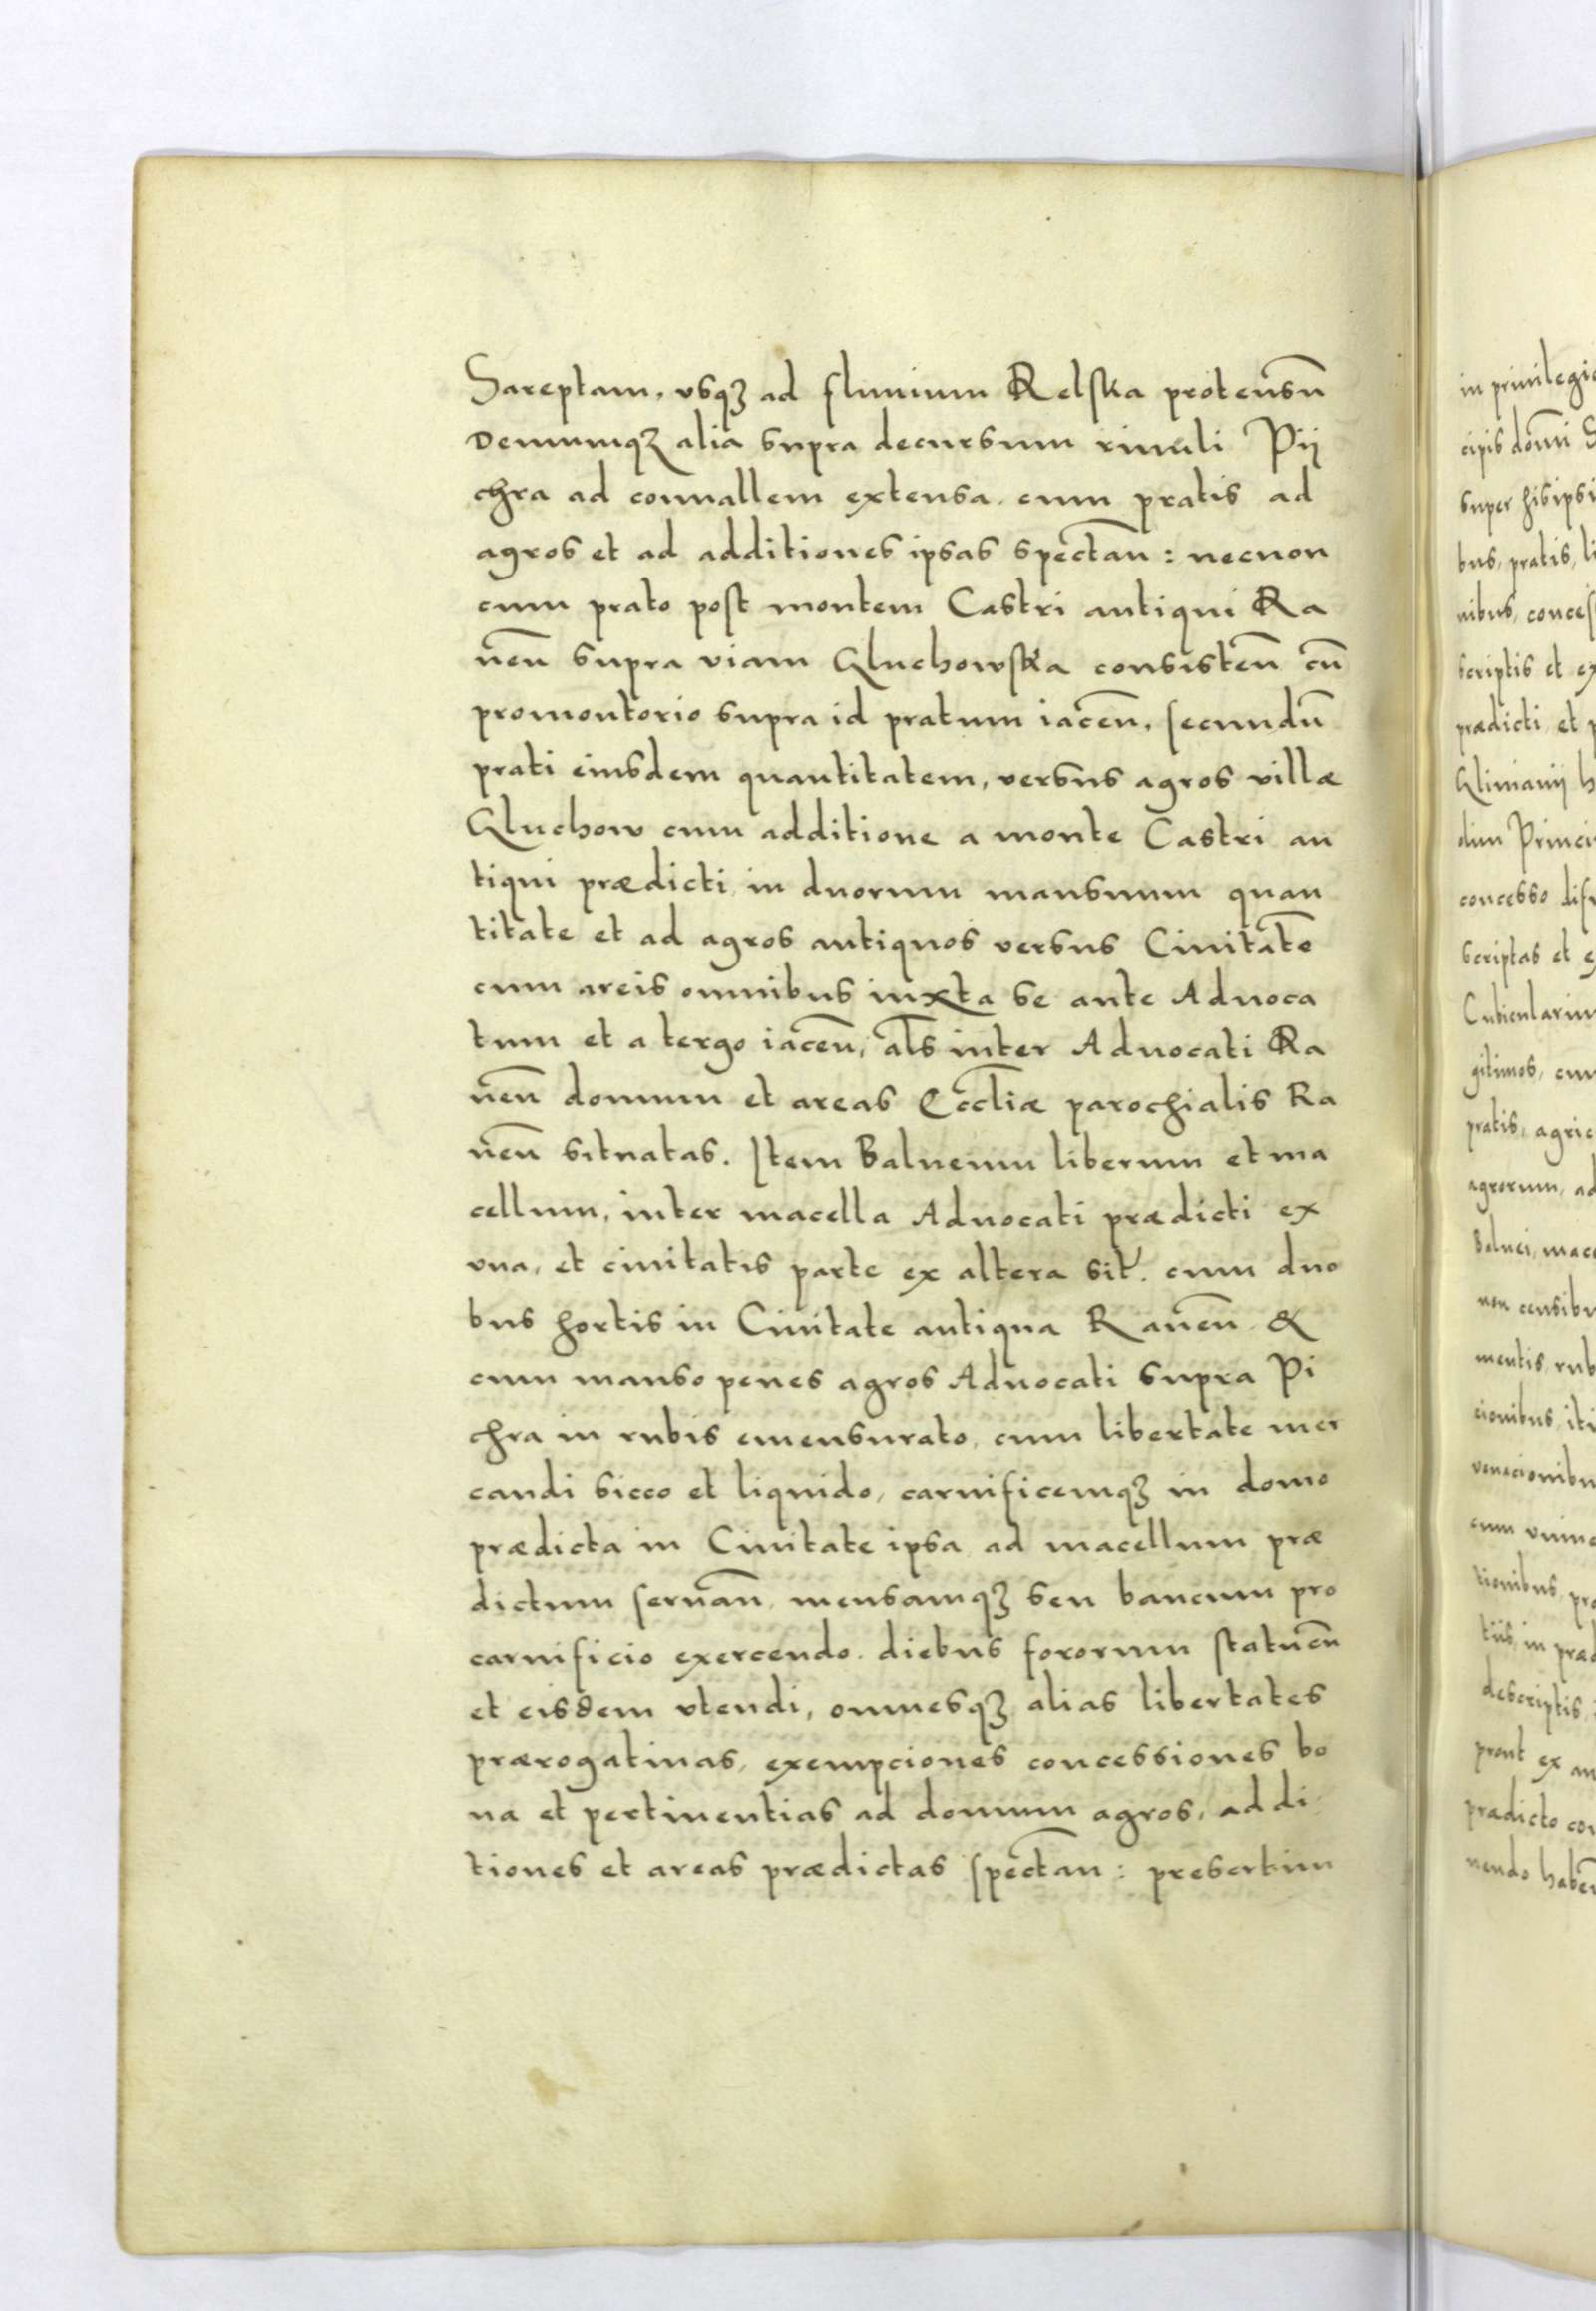 Sareptam, vsqꝫ ad fluuium Relska protensũ
Demumqꝫ alia supra decursum riuuli Pij
chra ad conuallem extensa. cum pratis ad
agros et ad additiones ipsas spectañ: necnon
cum prato post montem Castri antiqui Ra
ueñ supra viam Gluchowska consisteñ cũ
promontorio supra id pratum iaceñ, secundũ
prati eiusdem quantitatem, versus agros villæ
Gluchow cum additione a monte Castri an
tiqui prædicti, in duorum mansuum quan
titate et ad agros antiquos versus Ciuitatẽ
cum areis omnibus iuxta se ante Aduoca
tum et a tergo iaceñ, als̃ inter Aduocati Ra
ueñ domum et areas Eccl̃iæ parochialis Ra
ueñ situatas. Item Balneum liberum et ma
cellum, inter macella Aduocati prædicti ex
vna, et ciuitatis parte ex altera sit. cum duo
bus hortis in Ciuitate antiqua Raueñ &
cum manso penes agros Aduocati supra Pi
chra in rubis emensurato, cum libertate mer
candi sicco et liquido, carnificemqꝫ in domo
prædicta in Ciuitate ipsa ad macellum præ
dictum seruañ, mensamqꝫ seu bancum pro
carnificio exercendo. diebus fororum statueñ
et eisdem vtendi, omnesqꝫ alias libertates
prærogatiuas, exempciones concessiones bo
na et pertinentias ad domum agros, addi
tiones et areas prædictas spectañ: presertim
in priuilegio
cipis domĩ
super his ipsi
bus, pratis,
nibus,
scriptis et
prædicti, et
Princi
concesso
scriptas et
gitimos, cum
pratis,
agrorum, ad
Balnei,
non censibu
mentis,
cionibus,
cum
tionibus,
tiis, in
descriptis,
prout ex
prædicto